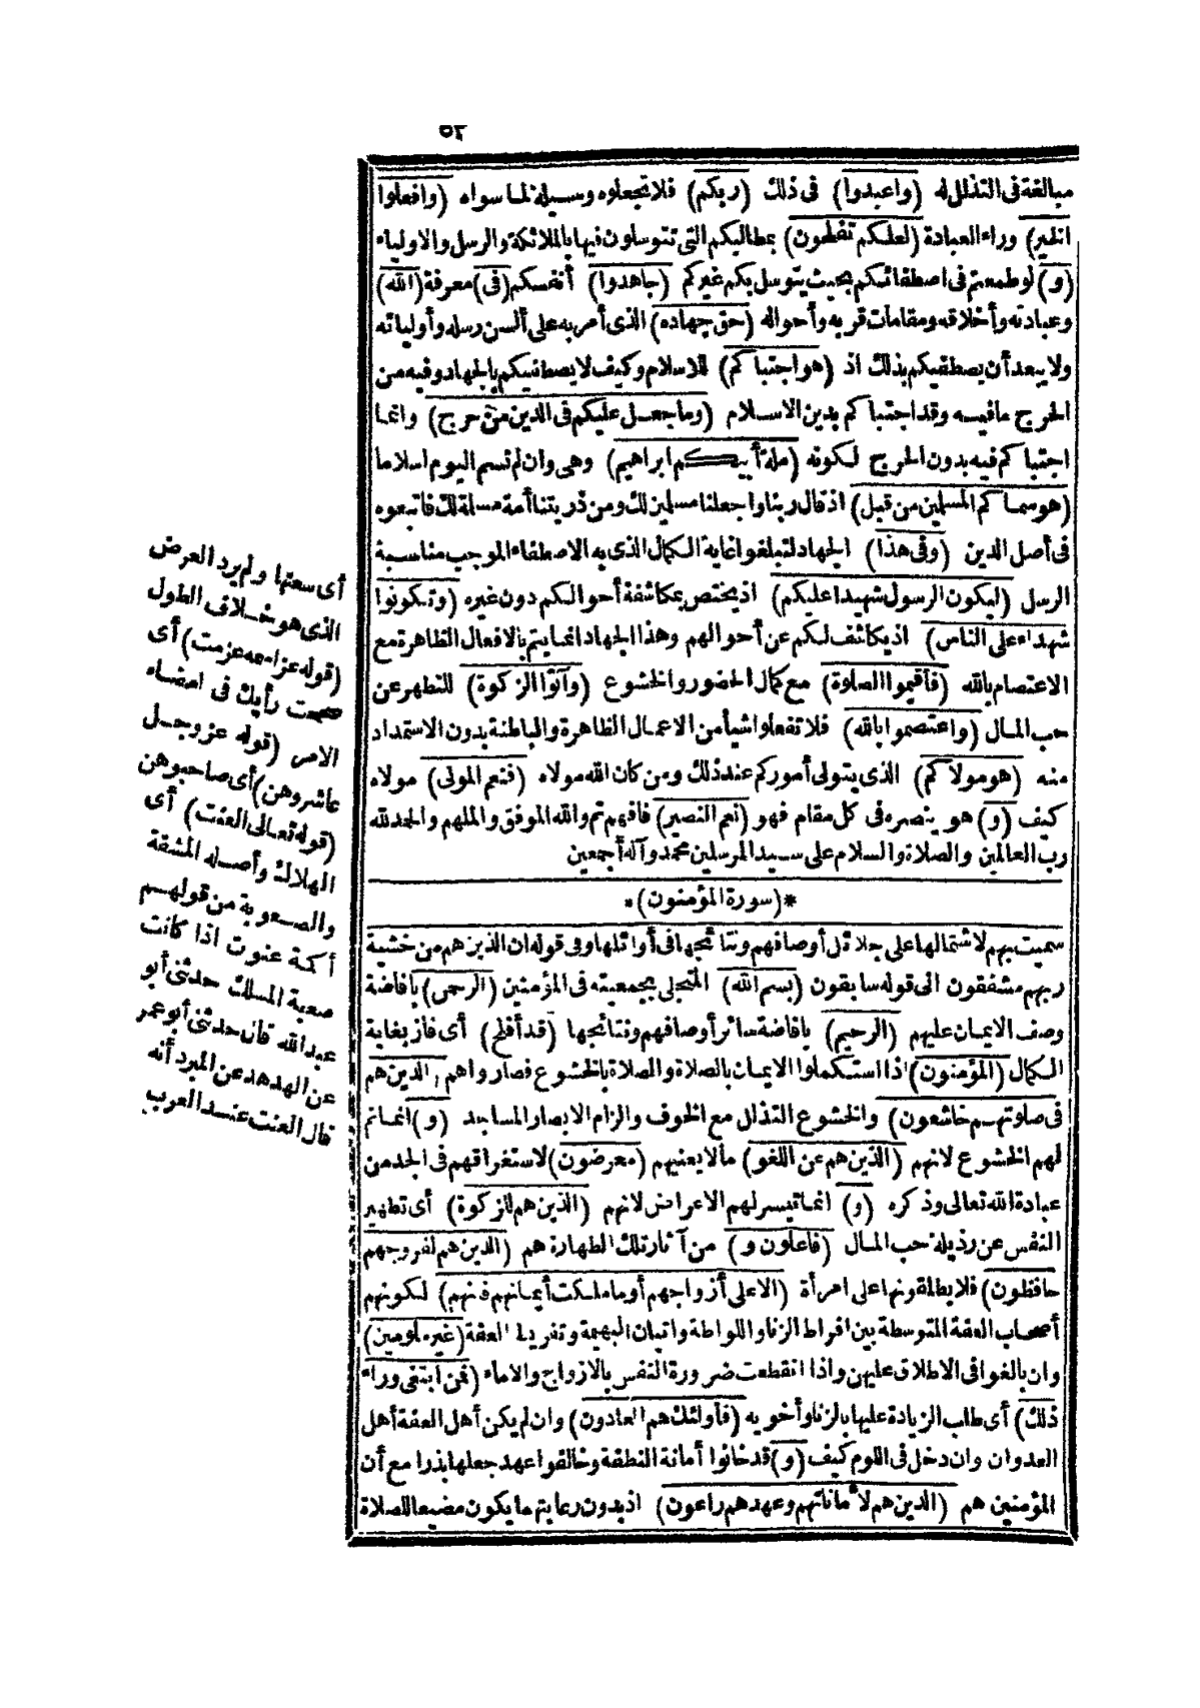 ٥٢
مبالغة فى التذلل له (واعبدوا) فى ذلك (ربكم) فلا تجعلوه وسيلة لما سواه (وافعلوا
الخير) وراء العبادة (لعلكم تفلحون) بمطالبكم التى تتوسلون فيها بالملائكة والرسل والاولياء
(و) لو طمعتم فى اصطفائكم بحيث يتوسل بكم غيركم (جاهدوا) أنفسكم (فى) معرفة (الله)
وعبادته وأخلاقه ومقامات قربه وأحواله (حق جهاده) الذى أمر به على ألسن رسله وأوليائه
ولا يبعد أن يصطفيكم بذلك اذ (هو اجتباكم) للاسلام وكيف لا يصطفيكم بالجهاد وفيه من
الحرج ما فيه وقد اجتباكم بدين الاسلام (وما جعل عليكم فى الدين من حرج) وانما
اجتباكم فيه بدون الحرج لكونه (ملة أبيكم ابراهيم) وهى وان لم تسم اليوم اسلاما
(هو سماكم المسلمين من قبل) اذ قال ربنا واجعلنا مسلمين لك ومن ذريتنا أمة مسلمة لك فاتبعوه
فى أصل الدين (وفى هذا) الجهاد لتبلغوا غاية الكمال الذى به الاصطفاء الموجب مناسبة
الرسل (ليكون الرسول شهيدا عليكم) اذ يختص بمكاشفة أحوالكم دون غيره (وتكونوا
شهداء على الناس) اذ يكاشف لكم عن أحوالهم وهذا الجهاد انما يتم بالافعال الظاهرة مع
الاعتصام بالله (فأقيموا الصلوة) مع كمال الحضور والخشوع (وآتوا الزكوة) للتطهر عن
حب المال (واعتصموا بالله) فلا تفعلوا شيأ من الاعمال الظاهرة والباطنة بدون الاستمداد
منه (هو مولاكم) الذى يتولى أموركم عند ذلك ومن كان الله مولاه (فنعم المولى) مولاه
كيف (و) هو ينصره فى كل مقام فهو (نعم النصير) فافهم تم والله الموفق والملهم والحمد لله
رب العالمين والصلاة والسلام على سيد المرسلين محمد وآله أجمعين
*(سورة المؤمنون)*
سميت بهم لاشتمالها على جلائل أوصافهم ونتائجها فى أوائلها وفى قوله ان الذين هم من خشية
ربهم مشفقون الى قوله سابقون (بسم الله) المتجلى بجمعيته فى المؤمنين (الرحمن) بافاضة
وصف الايمان عليهم (الرحيم) بافاضة سائر أوصافهم ونتائجها (قد أفلح) أى فاز بغاية
الكمال (المؤمنون) اذا استكملوا الايمان بالصلاة والصلاة بالخشوع فصاروا هم (الذين هم
فى صلوتهم خاشعون) والخشوع التذلل مع الخوف والزام الابصار المساجد (و) انما تم
لهم الخشوع لانهم (الذين هم عن اللغو) مالا يعنيهم (معرضون) لاستغراقهم فى الجد من
عبادة الله تعالى وذكره (و) انما تيسر لهم الاعراض لانهم (الذين هم للزكوة) أى تطهير
النفس عن رذيلة حب المال (فاعلون و) من آثار تلك الطهارة هم (الذين هم لفروجهم
حافظون) فلا يطلقونها على امرأة (الا على أزواجهم أو ما ملكت أيمانهم فانهم) لكونهم
أصحاب العفة المتوسطة بين افراط الزنا واللواطة واتيان البهيمة وتفريط العفة (غير ملومين)
وان بالغوا فى الاطلاق عليهن واذا انقطعت ضرورة النفس بالازواج والاماء (فمن ابتغى وراء
ذلك) أى طلب الزيادة عليها بالزنا وأخويه (فأولئك هم العادون) وان لم يكن أهل العفة أهل
العدوان وان دخل فى اللوم كيف (و) قد خانوا أمانة النطفة وخالفوا عهد جعلها بذرا مع أن
المؤمنين هم (الذين هم لأماناتهم وعهدهم راعون) اذ بدون رعايتهم ما يكون مضيعا للصلاة
أى سعتها ولم يرد العرض
الذى هو خلاف الطول
(قوله عزامعه عزمت) أى
صححت رأيك فى امضاء
الامر (قوله عز وجل
عاشروهن) أى صاحبوهن
(قوله تعالى العنت) أى
الهلاك وأصله المشقة
والصعوبة من قولهم
أكمة عنوت اذا كانت
صعبة المسلك حدثنى أبو
عبدالله قال حدثنى أبو عمر
عن الهدهد عن المبرد أنه
قال العنت عند العرب